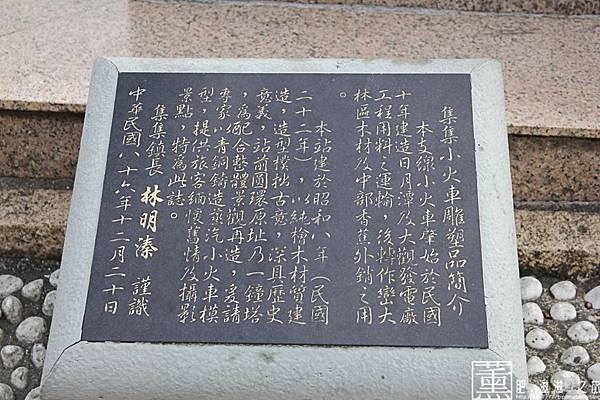 集集小火車雕塑品簡介
本支線小火車肇始於民國
十年建造日月潭及大觀發電廠
工程用料之運輸，後轉作巒大
林區木材及中部香蕉外銷之用
。
本站建於昭和八年（民國
二十二年），以純檜木材質建
造，造型樸拙古意，深具歷史
意義，站前圓環原址乃一鐘塔
，為配合整體景觀再造，爰請
專家以青銅鑄造蒸汽小火車模
型，提供旅客緬懷舊情及攝影
景點，特為此誌。
集集鎮長 林明溱 謹識
中華民國八十六年十二月二十日
薰 肥滋滋之旅